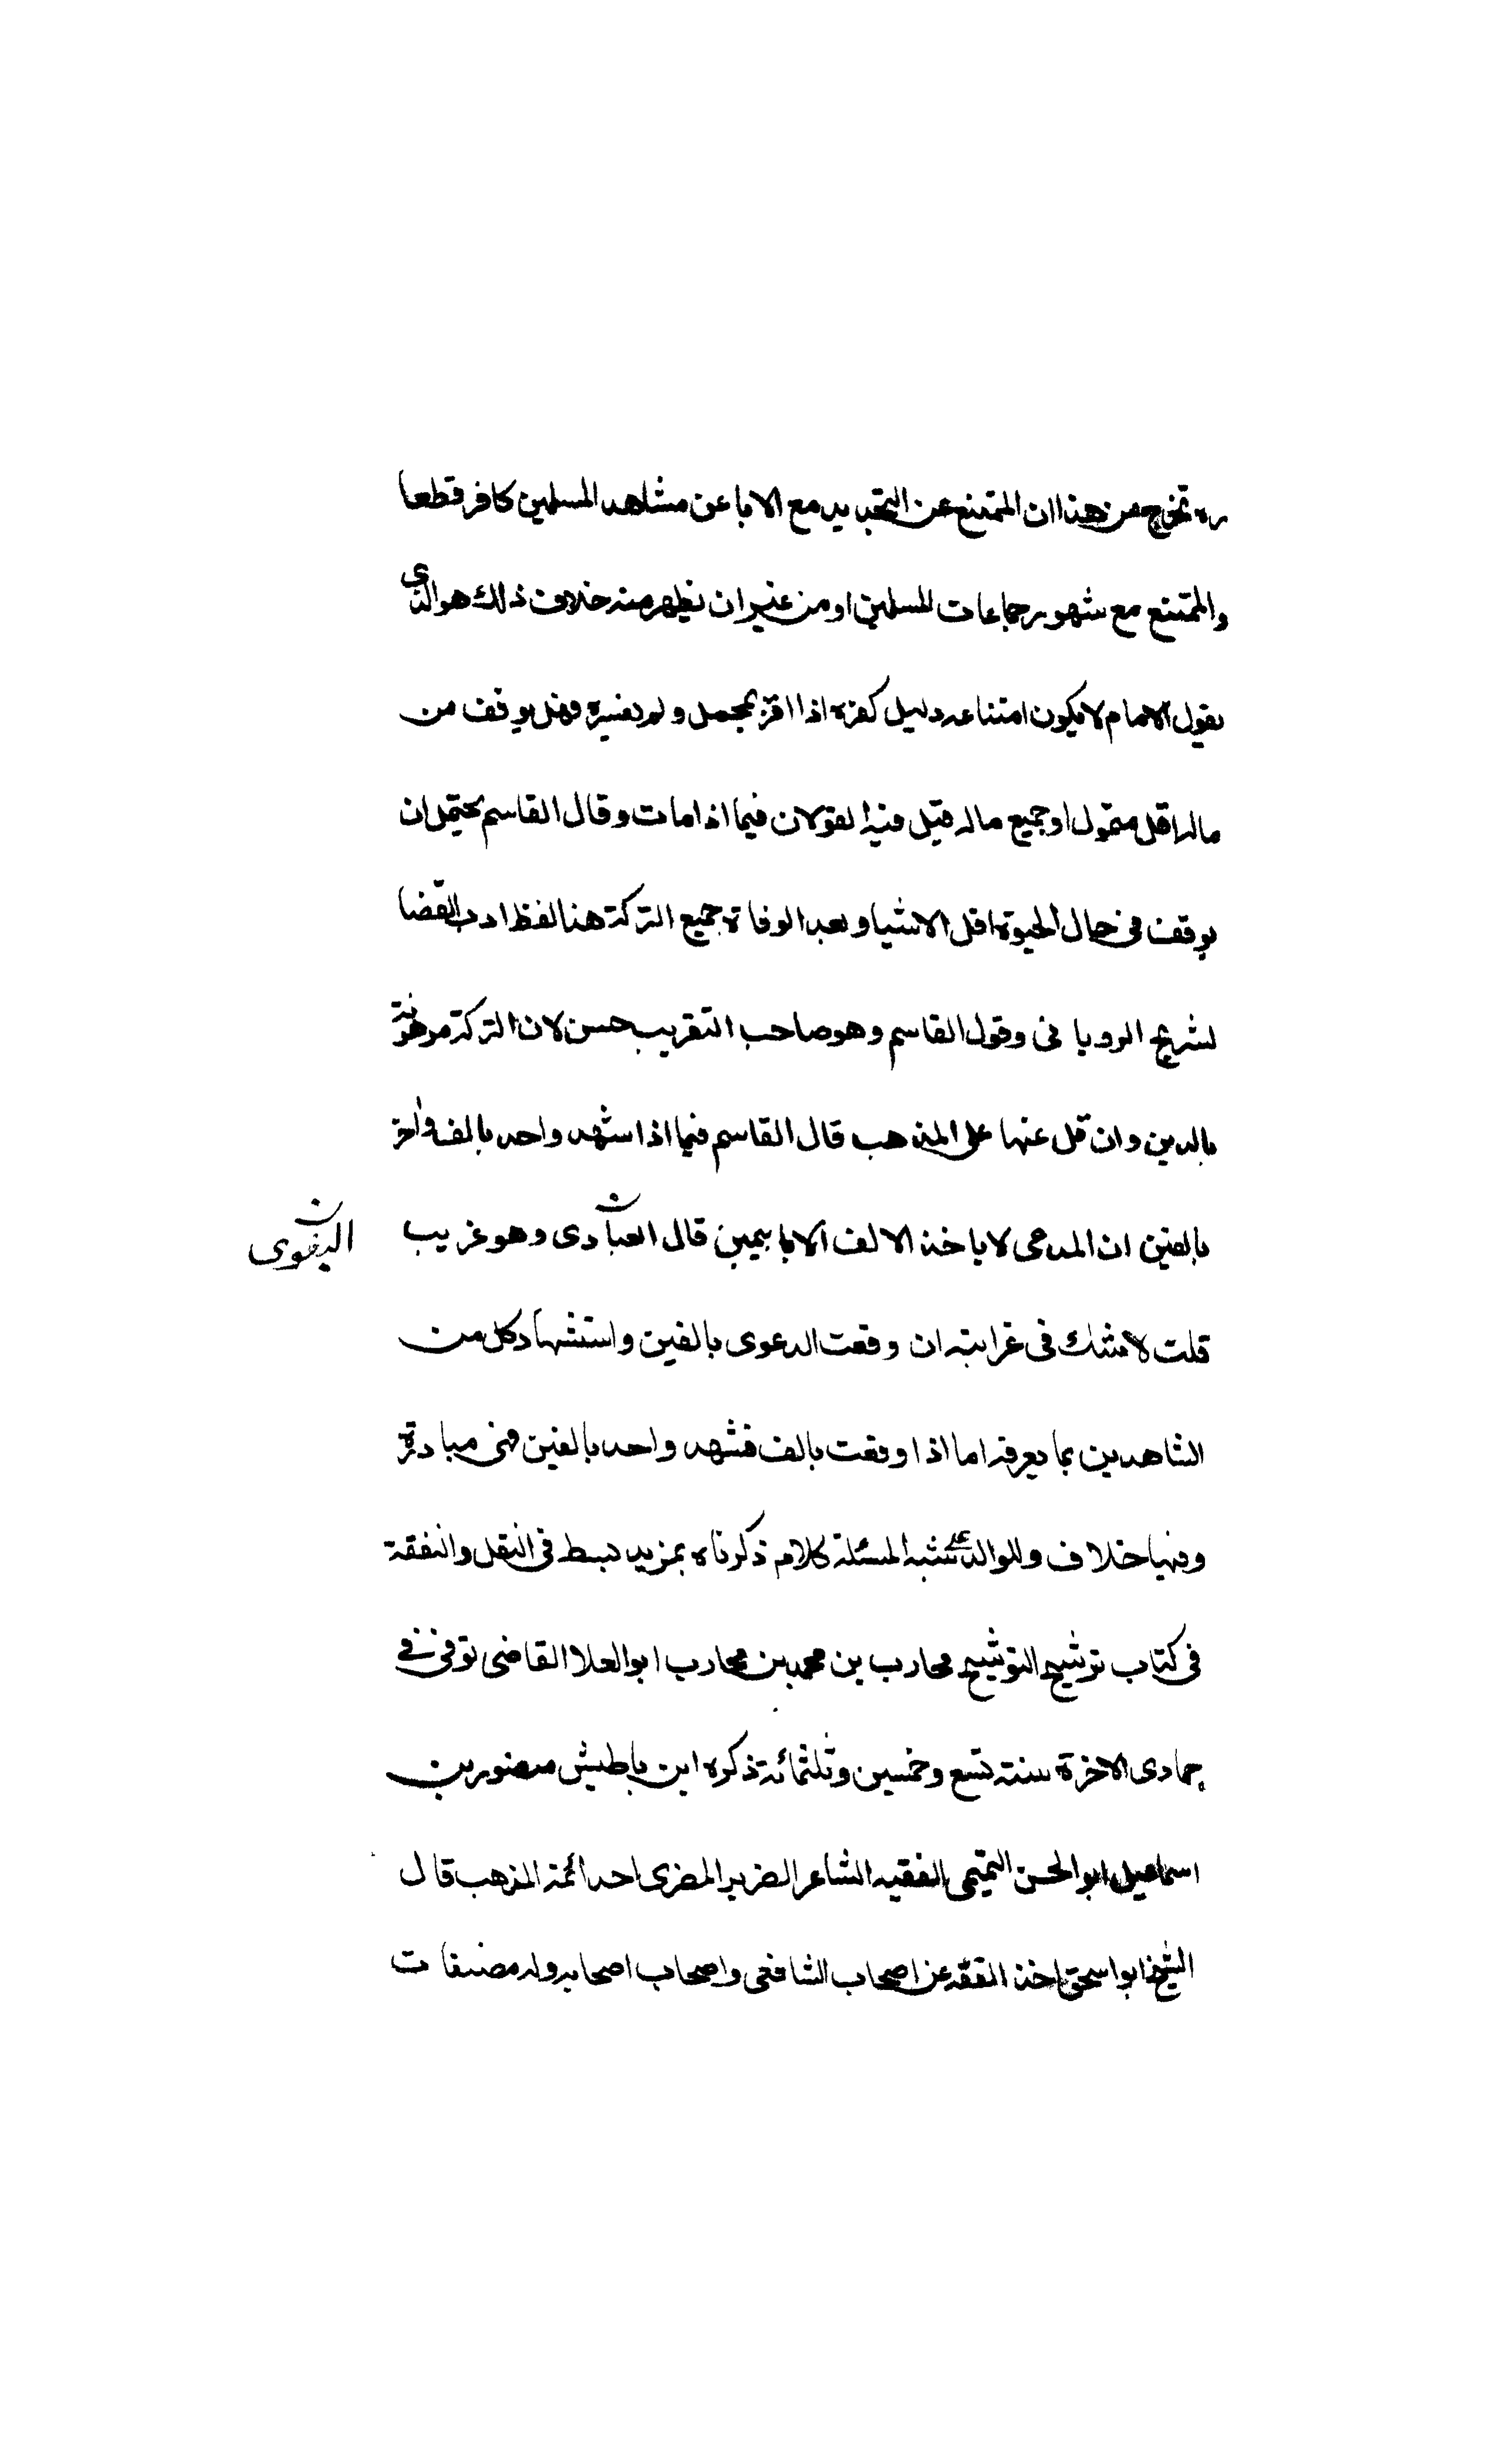 ره تخرج من هذا ان الممتنع عن التجديد مع الابا عن مشاهد المسلمين كافر قطعا
والممتنع مع شهور جماعات المسلمين او من غير ان يظهر منه خلاف ذلك هو الذى
يقول الامام لا يكون امتناعه دليل كفره اذا اقر بمجمل ولم يفسره فهل يوقف من
ماله اقل متمول او جميع ماله قيل فيه القولان فيما اذا مات وقال القاسم يحتمل ان
يوقف فى حال الحيوة اقل الاشيا وبعد الوفاة جميع التركة هنا لفظ ادب القضا
لشريح الرويانى وقول القاسم وهو صاحب التقريب حسن لان التركة مرهونة
بالدين وان قل عنها على المذهب قال القاسم فيما اذا شهد واحد بالف واخر
بالفين ان المدعى لا ياخذ الالف الا بابيمين قال العبادى وهو غريب
البغوى ن
قلت لا شك فى غرابته ان وقعت الدعوى بالفين واستشهاد كل من
الشاهدين بما يعرفه اما اذا وقعت بالف فشهد واحد بالفين فهى مبادرة
وفيها خلاف وللوالد على شبه المسئلة كلام ذكرناه بمزيد بسط فى النقل والنفقة
فى كتاب ترشيح التوشيح محارب بن محمد بن محارب ابو العلا القاضى توفى فى
جمادى الاخرة سنة تسع وخمسين وثلثمائة ذكره ابن باطيش منصور بن
اسماعيل ابو الحسن التميمى الفقيه الشاعر الضرير المضرى احد ائمة المذهب قال
الشيخ ابو اسحق اخذ الفقه عن اصحاب الشافعى واصحاب اصحابه وله مصنفات